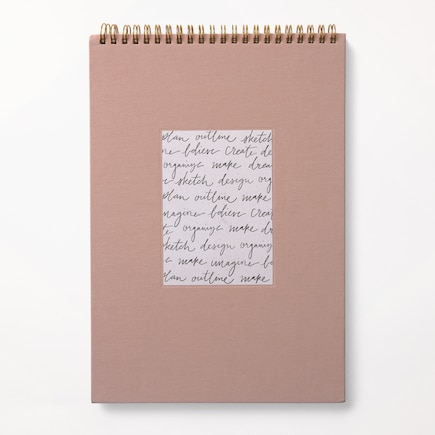 plan outline sketch
ne believe create de
organize make drea
e sketch design org
plan outline make
magine believe creat
te organize make dr
sketch design organiz
e make imagine be
plan outline make